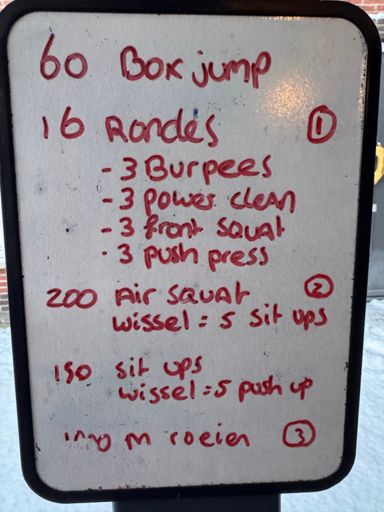 60 Box jump
16 Rondes ①
- 3 Burpees
- 3 power clean
- 3 front squat
- 3 push press
200 Air squat ②
wissel = 5 sit ups
150 sit ups
wissel = 5 push up
m roeien ③